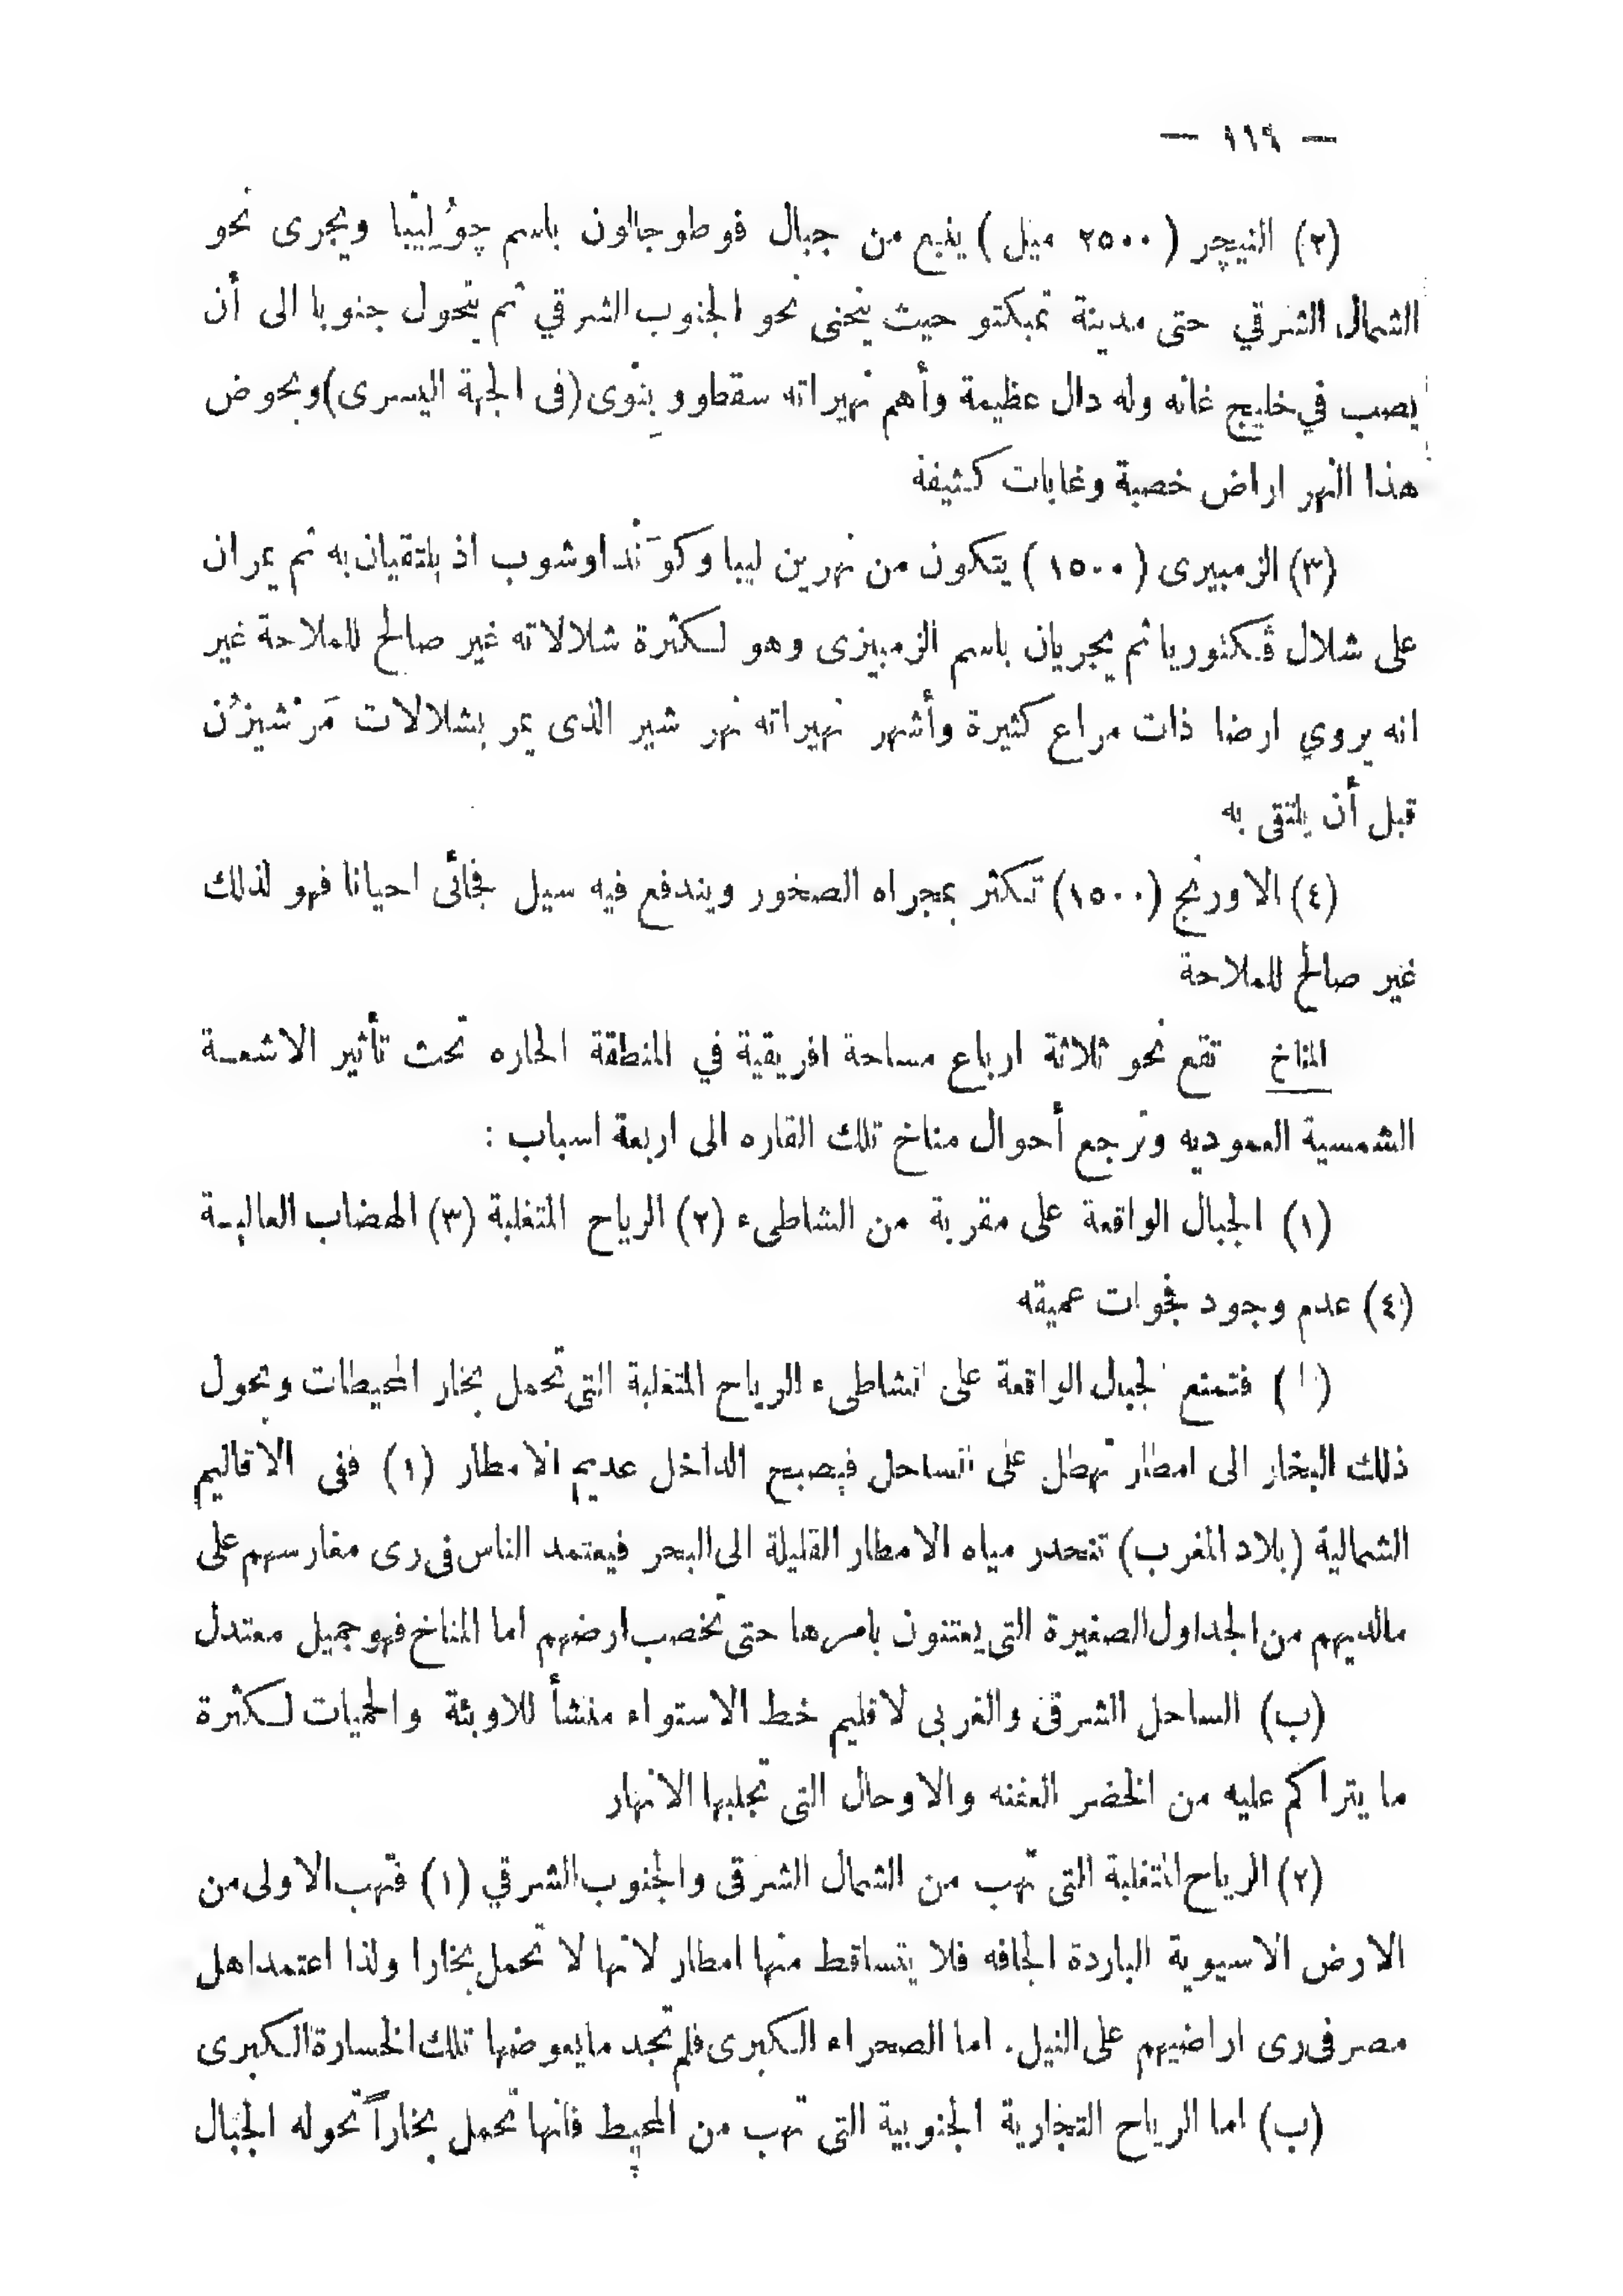 — ١١٩ —
(٢) النيچر ( ٢٥٠٠ ميل ) ينبع من جبال فوطوجالون باسم چوُلِيْبا ويجرى نحو
الشمال الشرقي حتى مدينة تمبكتو حيث ينحنى نحو الجنوب الشرقي ثم يتحول جنوبا الى أن
يصب في خليج غانه وله دال عظيمة وأهم نهيراته سقطو و بِنْوى (فى الجهة اليسرى) وبحوض
هذا النهر اراض خصبة وغابات كثيفة
(٣) الزمبيرى ( ١٥٠٠ ) يتكون من نهرين ليبا وكوَنْدا وشوب اذ يلتقيان به ثم يمران
على شلال ڤكتوريا ثم يجريان باسم الزمبيزى وهو لكثرة شلالاته غير صالح للملاحة غير
انه يروي ارضا ذات مراع كثيرة وأشهر نهيراته نهر شير الذى يمر بشلالات مَرْشيزُن
قبل أن يلتقى به
(٤) الاورنج (١٥٠٠) تكثر بمجراه الصخور ويندفع فيه سيل فجائى احيانا فهو لذلك
غير صالح للملاحة
المناخ تقع نحو ثلاثة ارباع مساحة افريقية في المنطقة الحاره تحت تأثير الاشعـة
الشمسية العموديه وترجع أحوال مناخ تلك القاره الى اربعة اسباب :
(١) الجبال الواقعة على مقربة من الشاطىء (٢) الرياح المتغلبة (٣) الهضاب العاليـة
(٤) عدم وجود فجوات عميقه
(١) فتمنع الجبال الواقعة على الشاطىء الرياح المتغلبة التى تحمل بخار المحيطات وتحول
ذلك البخار الى امطار تهطل على الساحل فيصبح الداخل عديم الامطار (١) ففى الاقاليم
الشمالية (بلاد المغرب) تنحدر مياه الامطار القليلة الى البحر فيعتمد الناس فى رى مغارسهم على
مالديهم من الجداول الصغيرة التى يعتنون بامرها حتى تخصب ارضهم اما المناخ فهو جميل معتدل
(ب) الساحل الشرقى والغربى لاقليم خط الاستواء منشأ للاوبئة والحميات لكثرة
ما يتراكم عليه من الخضر العفنه والاوحال التى تجلبها الانهار
(٢) الرياح المتغلبة التى تهب من الشمال الشرقى والجنوب الشرقي (١) فتهب الاولى من
الارض الاسيوية الباردة الجافه فلا يتساقط منها امطار لانها لا تحمل بخارا ولذا اعتمد اهل
مصر فى رى اراضيهم على النيل. اما الصحراء الكبرى فلم تجد مايعوضها تلك الخسارة الكبرى
(ب) اما الرياح التجارية الجنوبية التى تهب من المحيط فانها تحمل بخاراً تحوله الجبال